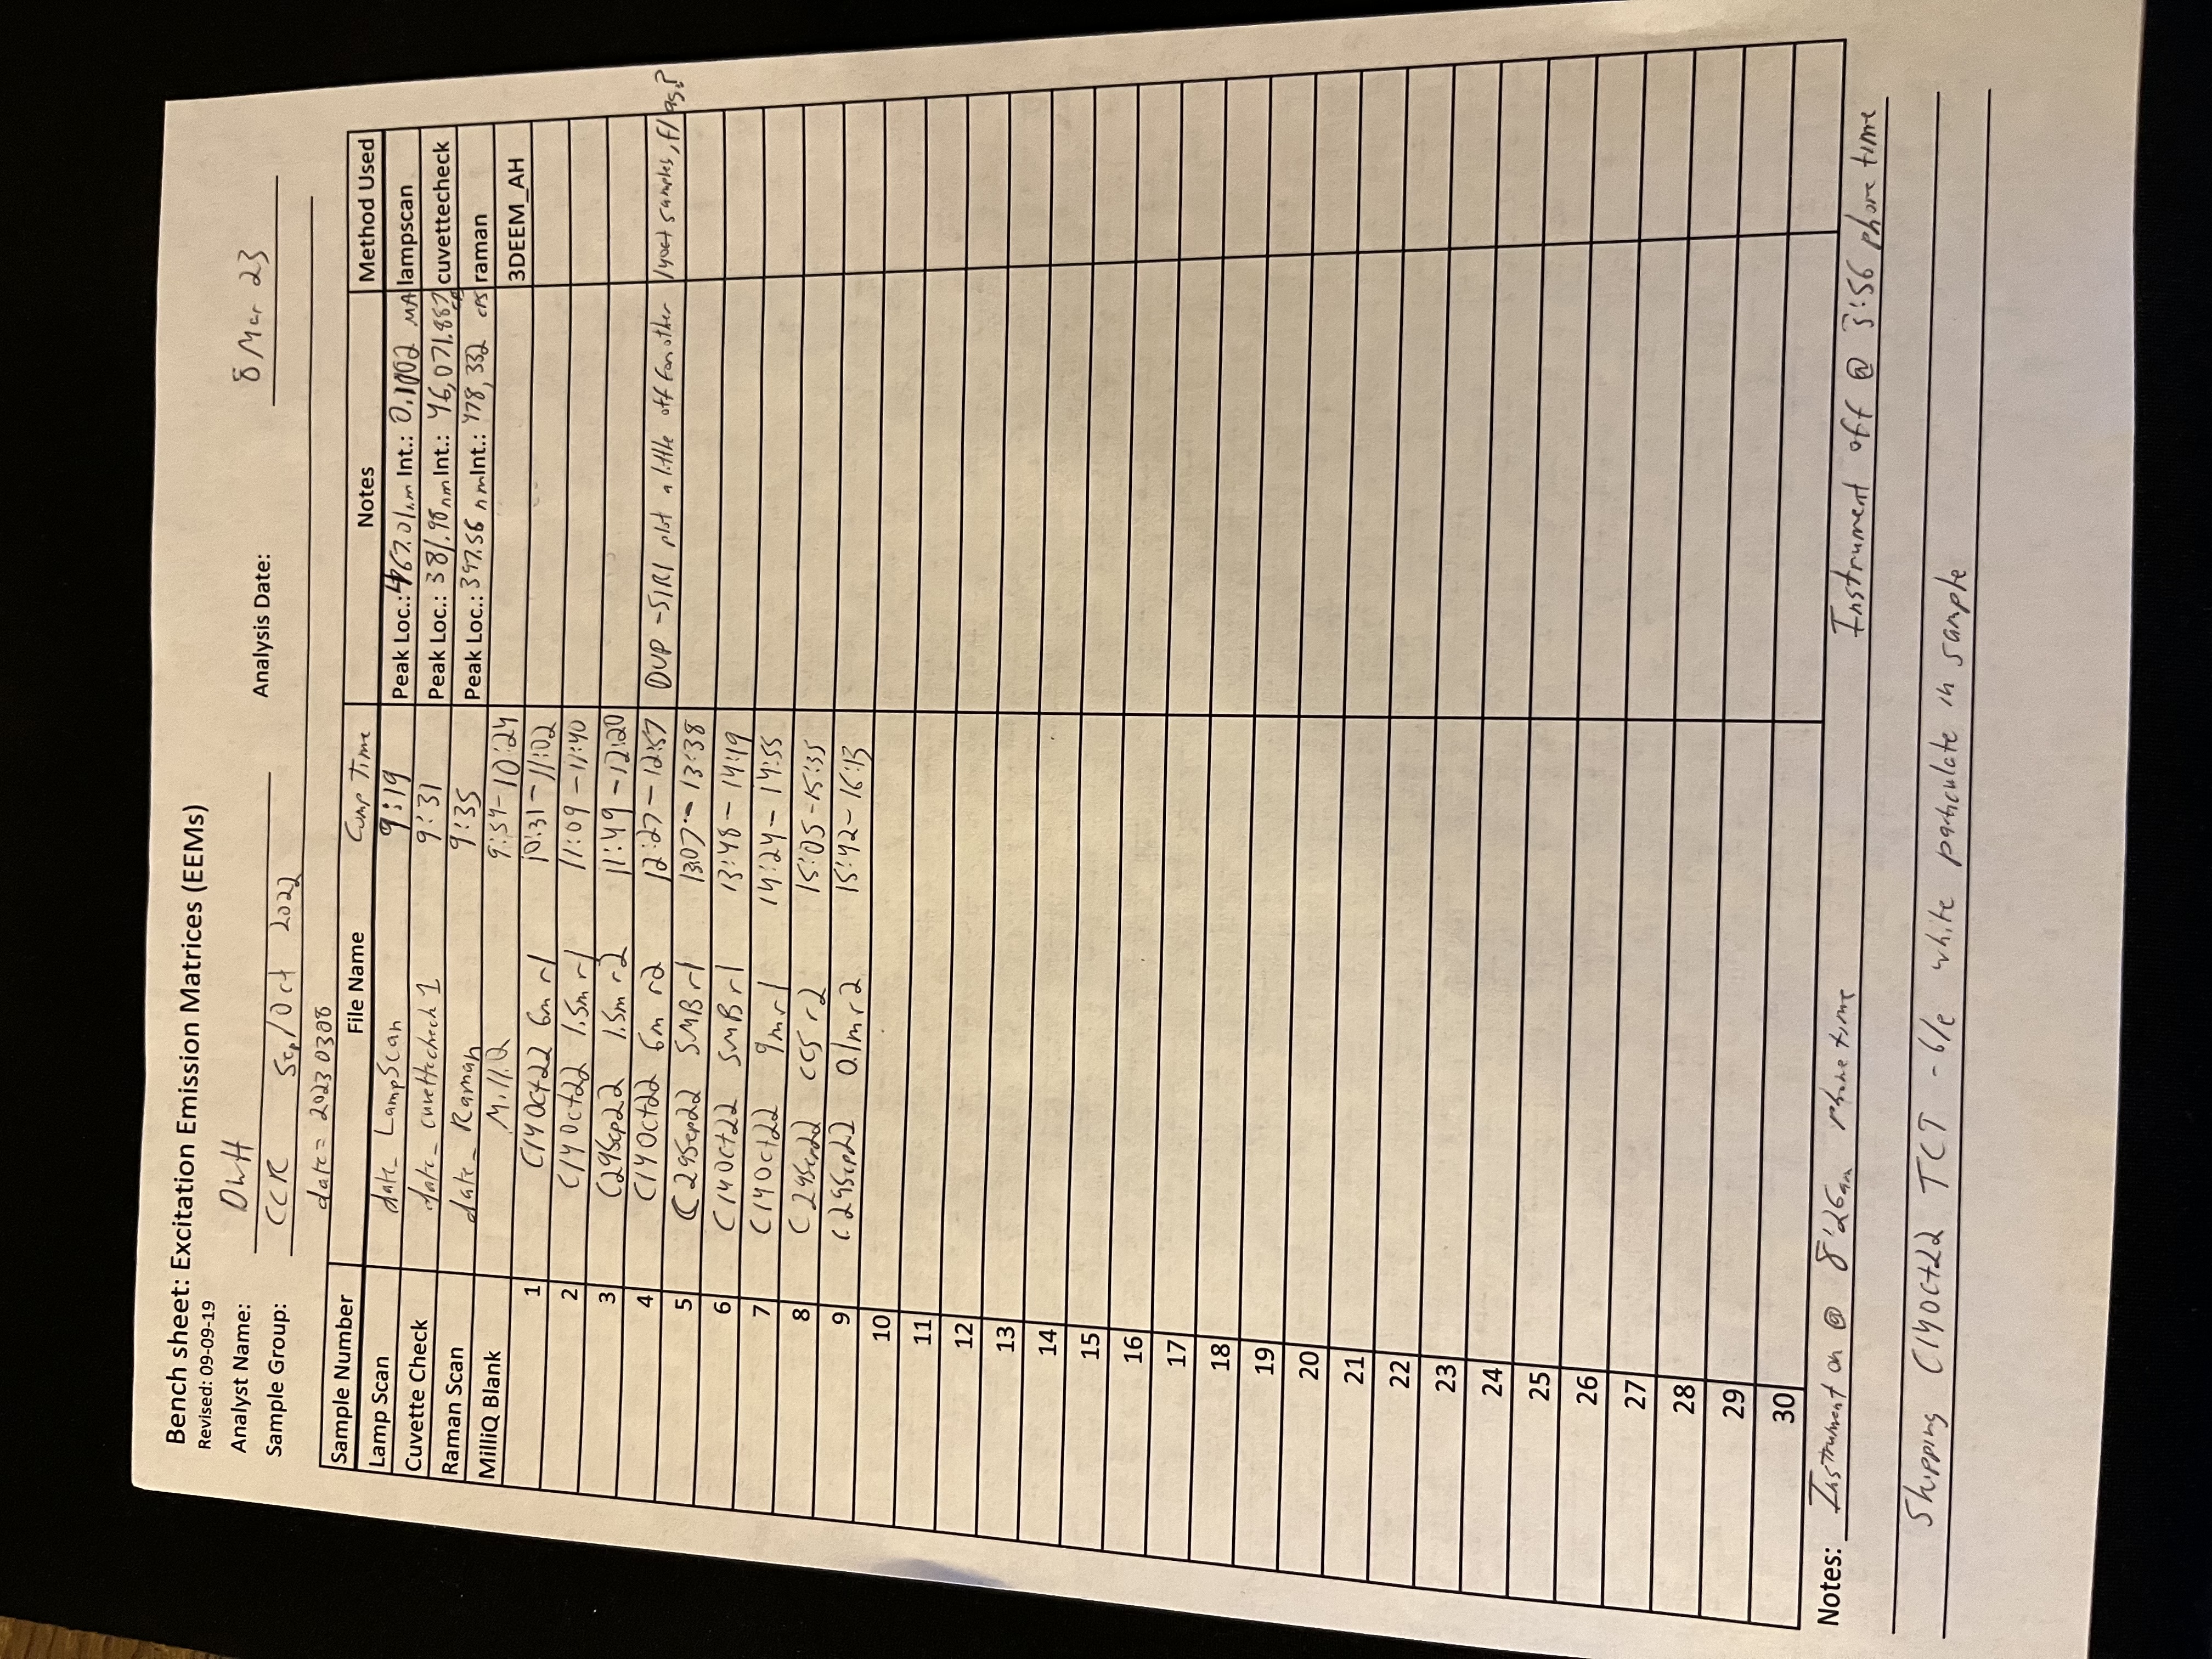 Bench sheet: Excitation Emission Matrices (EEMs)
Revised: 09-09-19
Analyst Name: DWH Analysis Date: 8 Mar 23
Sample Group: CCR Sep/Oct 2022
date = 20230308
Sample Number File Name Comp Time Notes Method Used
Lamp Scan date_LampScan 9:19 Peak Loc.: 467.01nm Int.: 0.1002 MA lampscan
Cuvette Check date_cuvettecheck1 9:31 Peak Loc.: 381.98nm Int.: 46,071.887 cuvettecheck
Raman Scan date_Raman 9:35 Peak Loc.: 397.56 nm Int.: 478,332 CPS raman
MilliQ Blank MilliQ 9:54-10:24 3DEEM_AH
1 C14Oct22 6m r1 10:31-11:02
2 C14Oct22 1.5m r1 11:09-11:40
3 C29Sep22 1.5m r2 11:49-12:20
4 C14Oct22 6m r2 12:27-12:57 DUP -S1R1 plot a little off from other 14oct samples, flag?
5 C29Sep22 SMB r1 13:07-13:38
6 C14Oct22 SMB r1 13:48-14:19
7 C14Oct22 9m r1 14:24-14:55
8 C29Sep22 CCS r2 15:05-15:35
9 C29Sep22 0.1m r2 15:42-16:13
10
11
12
13
14
15
16
17
18
19
20
21
22
23
24
25
26
27
28
29
30
Notes: Instrument on @ 8:26am phone time Instrument off @ 3:56 phone time
Skipping C14Oct22 TCT - b/c white particulate in sample